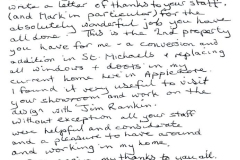 write a letter of thanks to your staff,
(and Mark in particular) for the
absolutely wonderful job you have
all done. This is the 2nd property
you have for me - a conversion and
addition in St. Michaels & replacing
all windows & doors in my
current home here in Apple
I found it very useful to visit
your showroom and work on the
design with Jim Rankin.
Without exception all your staff
were helpful and considerate
and a pleasure to have around
and working in my home.
my thanks to you all.